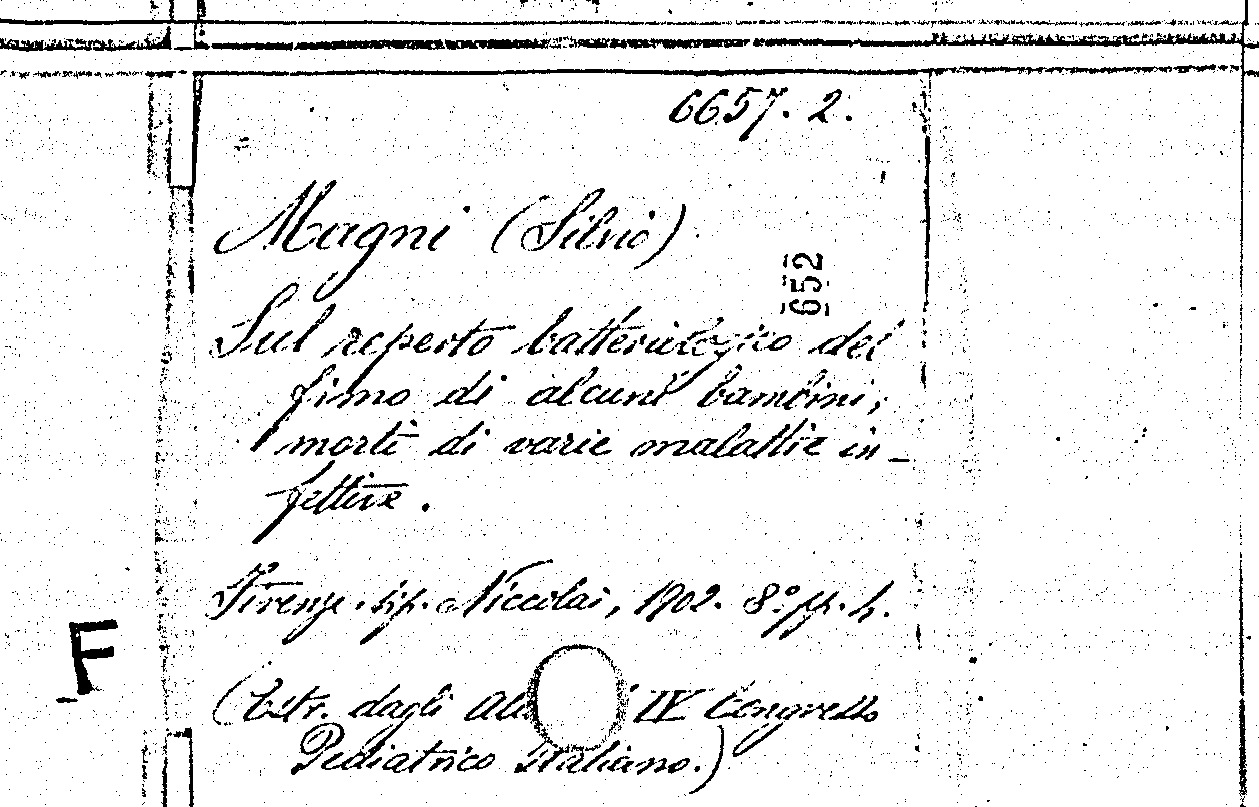 6657. 2.
Magni (Silvio)
652
Sul reperto batteriologico del
fimo di alcuni bambini,
morti di varie malattie in-
fettive.
Firenze. tip. Niccolai, 1902. 8° pp. 4.
F
(Estr. dagli IV Congresso
Pediatrico italiano.)